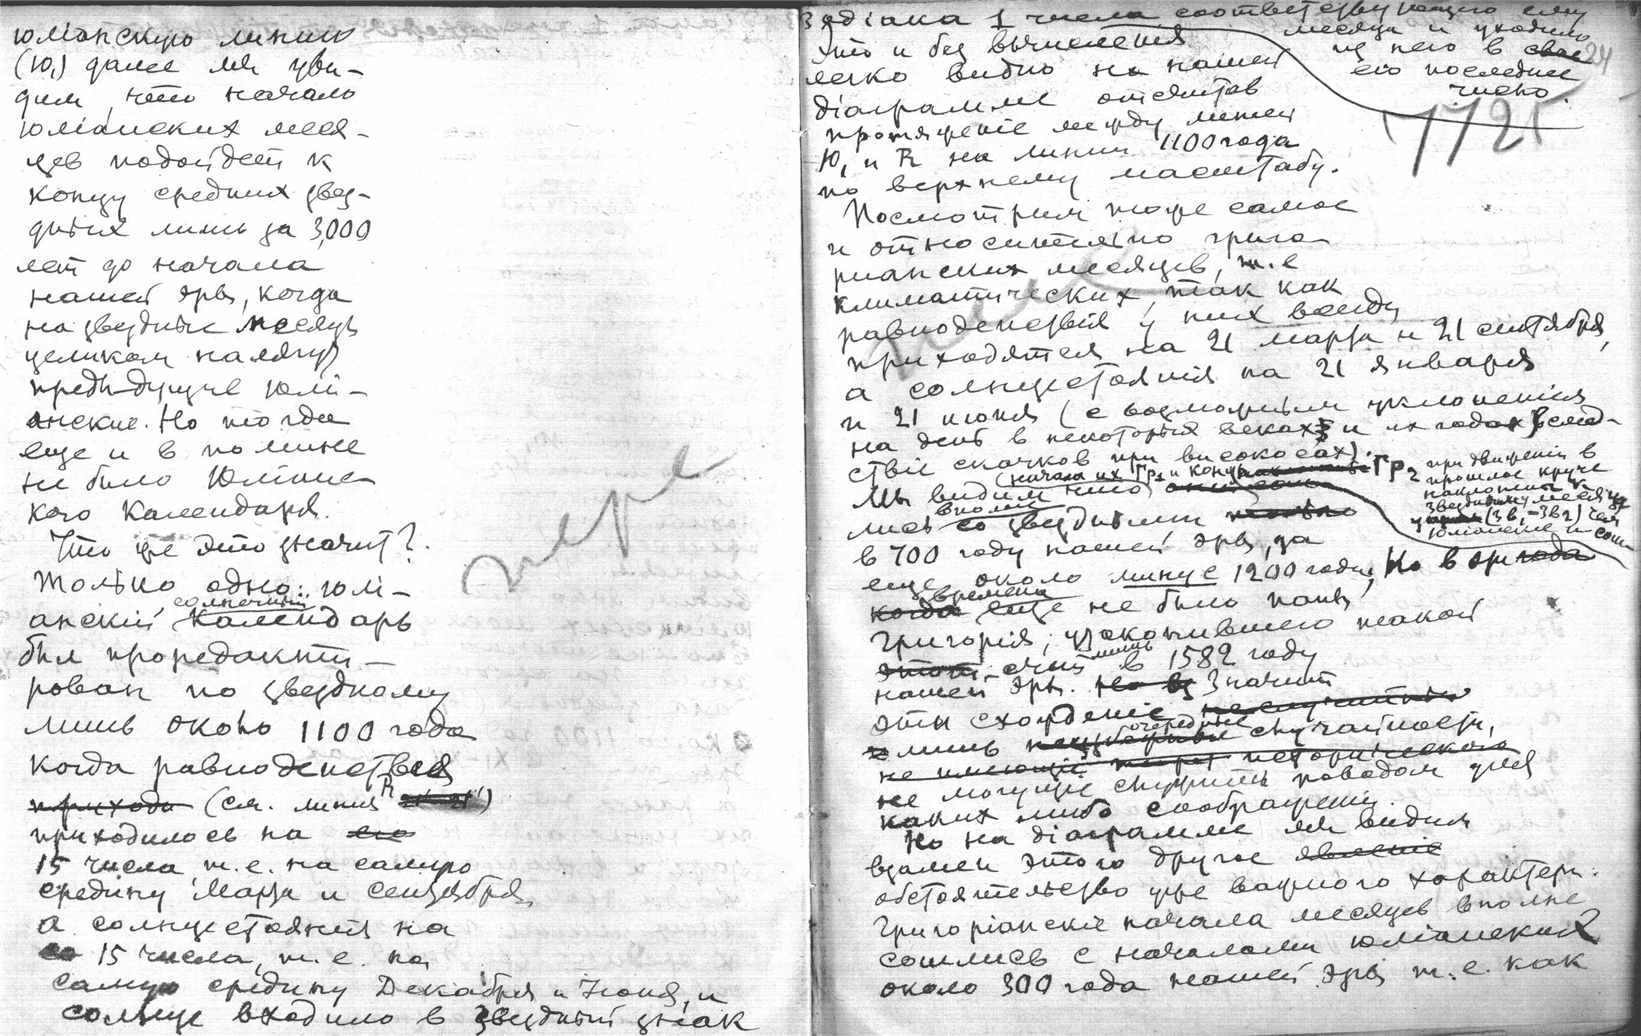 юліанскую линию
(Ю,) далее мы уви-
дим, что начало
юліанских меся-
цев подойдет к
концу средних звез-
дных лишь за 3,000
лет до начала
нашей эры, когда
на звездные месяцы
целиком налягут
предъидущие юлі-
анские. Но тогда
еще и в помине
не было Юлианс-
кого Календаря.
Что же это значит?
Только одно: юлі-
солнечный
анскій Календарь
был проредакти-
рован по звездному
лишь около 1100 года
когда равноденствия
приходи (см. линия R
приходилось на его
15 числа, т.е. на самую
средину Марта и Сентября,
а солнцестояния на
со 15 числа, т.е. на
самую средину Декабря и Июня, и
солнце входило в звездный знак
пере
Зодіака 1 числа соответствующего ему
месяца и уходило
из него в свое
его последнее
число.
24
1725
Это и без вычисления
легко видно на нашей
діаграмме отсчитав
протяженіе между линией
Ю, и R на линии 1100 года
по верхнему масштабу.
Посмотрим тоже самое
и относительно григо-
рианских месяцев, т.е
климатических, так как
равноденствія у них всегда
приходятся на 21 марта и 21 сентября,
а солнцестоянія на 21 января
и 21 июня (с возможным уклоненіям
на день в некоторых веках и их годах вслед-
ствіе скачков при високосах).
начала их Гр1 и концы Гр2 при движении в
прошлое круче
наклонны к
звездному месяцу
(Зв1-Зв2) чем
юліанские и сош-
Мы видим что они
вполне
лись со звездными
в 700 году нашей эры, за
еще около минус 1200 года, Но в эти года
времена
когда еще не было папы
Григорія, узаконившего такой
лишь
этот счет в 1582 году
нашей эры. Но вз Значит
эти схожденіе не случайны
очередные
и лишь случайности,
не имеющіе исторического
не могущіе служить поводом для
каких либо соображений.
Но на діаграмме мы видим
взамен этого другое явленіе
обстоятельство уже важного характера:
Григоріанскіе начала месяцев вполне
сошлись с началами юліанских
около 300 года нашей эры т.е. как